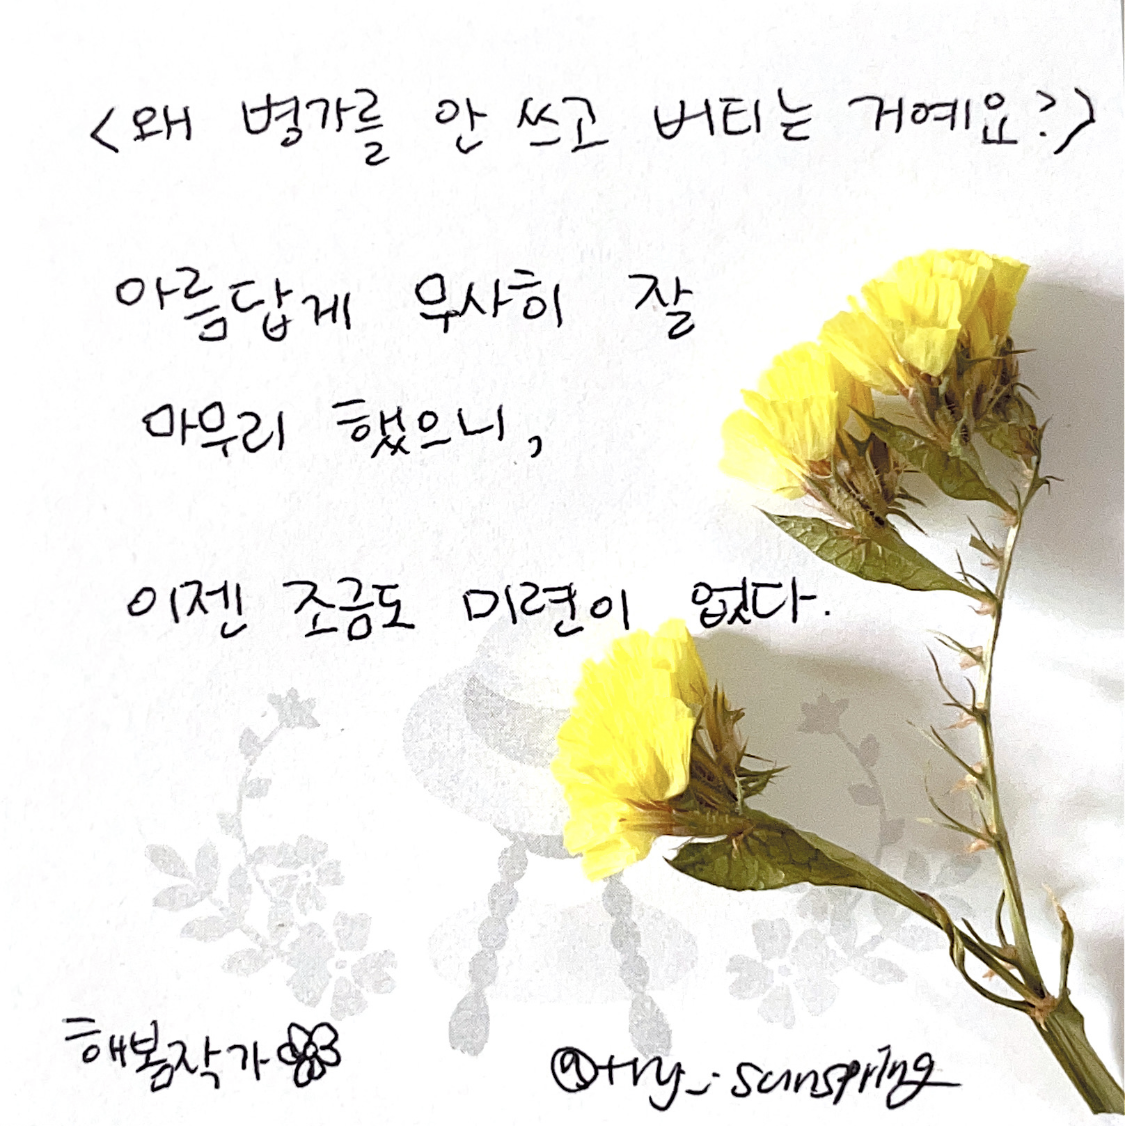 <왜 병가를 안 쓰고 버티는 거예요?>
아름답게 무사히 잘
마무리 했으니,
이젠 조금도 미련이 없다.
해봄작가
@try_.sunspring_